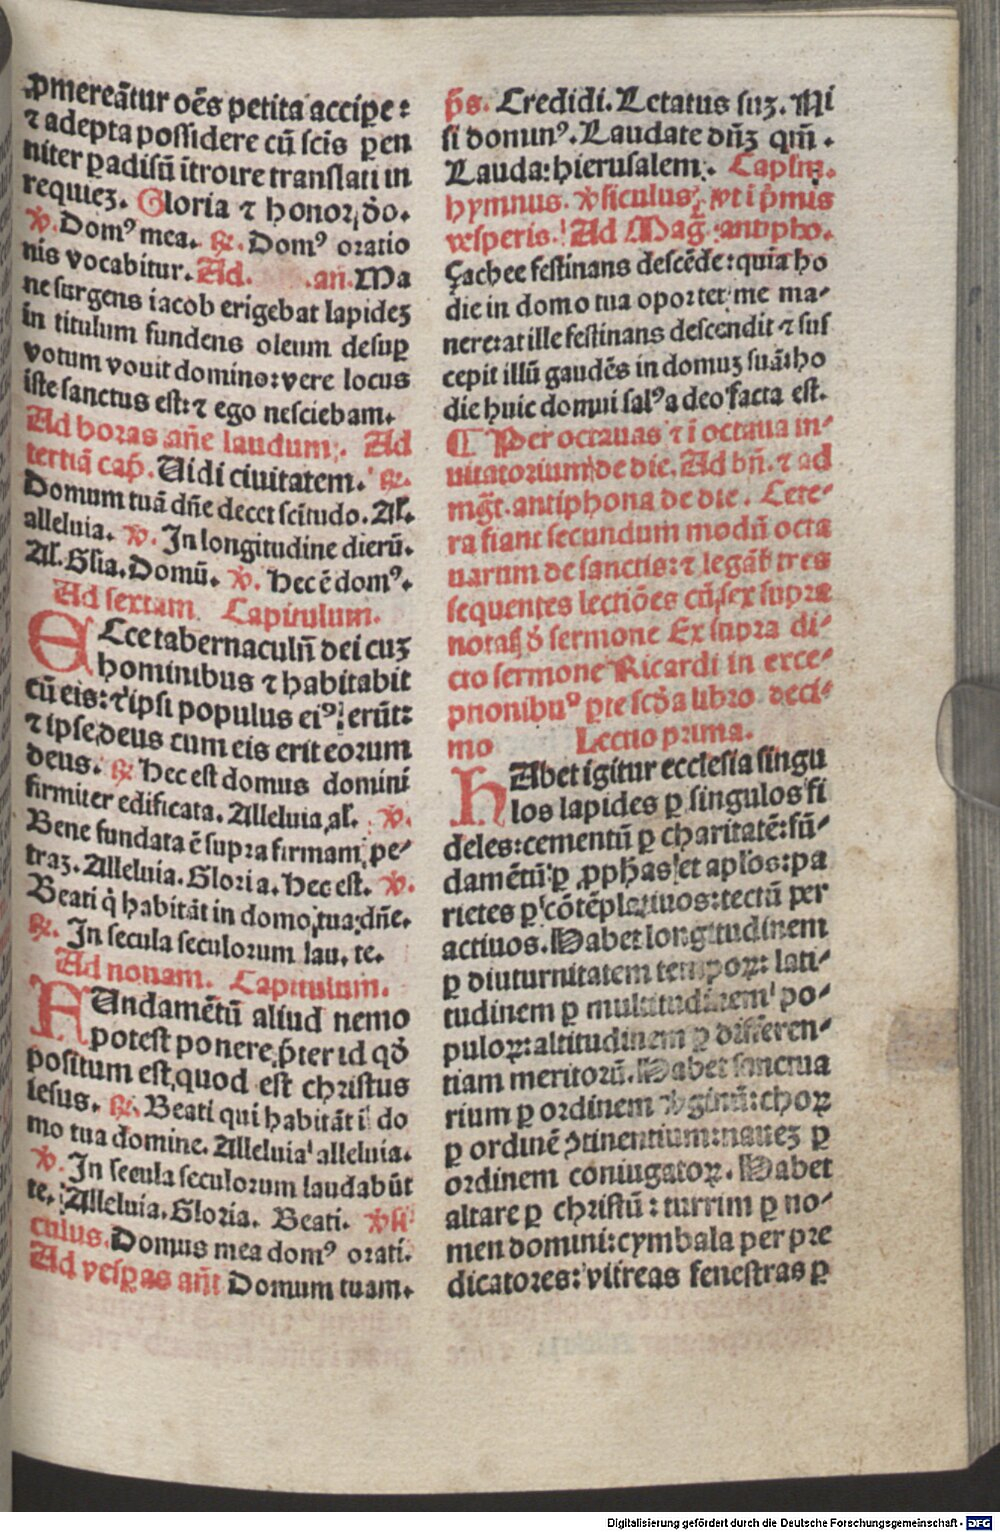 ꝓmereãtur oẽs petita accipe:
⁊ adepta possidere cũ scis ꝑen
niter ꝑadisũ ĩtroire translati in
requiez. Gloria ⁊ honor, ðo.
℣. Domꝰ mea. ℟. Domꝰ oratio
nis vocabitur. Ad. añ. Ma
ne surgens iacob erigebat lapidez
in titulum fundens oleum desuꝑ
votum vouit domino: vere locus
iste sanctus est: ⁊ ego nesciebam.
Ad horas añe laudum. Ad
tertiã cap̃. Uidi ciuitatem. ℟.
Domum tuã dñe decet scitudo. Al.
alleluia. ℣. In longitudine dierũ.
Al. Glia. Domũ. ℣. Hec ẽ domꝰ.
Ad sextam Capitulum.
ECce tabernaculũ dei cuz
hominibus ⁊ habitabit
cũ eis: ⁊ ipsi populus eiꝰ erũt:
⁊ ipse deus cum eis erit eorum
deus. ℟. Hec est domus domini
firmiter edificata. Alleluia al. ℣.
Bene fundata ẽ supra firmam pe⸗
traz. Alleluia. Gloria. Hec est. ℣.
Beati q̇ habitãt in domo tua dñe.
℟. In secula seculorum lau. te.
Ad nonam. Capitulum.
FUndamẽtũ aliud nemo
potest ponere p̃ter id qð
positum est, quod est christus
iesus. ℟. Beati qui habitãt i do
mo tua domine. Alleluia alleluia.
℣. In secula seculorum laudabũt
te. Alleluia. Gloria. Beati. ℣si⸗
culus. Domus mea domꝰ orati.
Ad vesꝑas añt Domum tuam.
p̃s. Credidi. Letatus suz. Ni
si dominꝰ. Laudate dñz qm̃.
Lauda: hierusalem. Caplm̃.
hymnus. ℣siculus, vt i p̃mis
vesperis. Ad Mag̃. antipho.
Çachee festinans descẽde: quia ho
die in domo tua oportet me ma⸗
nere: at ille festinans descendit ⁊ sus
cepit illũ gaudẽs in domuz suã: ho
die huic domui salꝰ a deo facta est.
¶ Per octauas ⁊ ĩ octaua in⸗
uitatorium de die. Ad bñ. ⁊ ad
mg̃t. antiphona de die. Cete⸗
ra fiant secundum modũ octa
uarum de sanctis: ⁊ legãt tres
sequentes lectiões cũ sex supra
notatꝭ ð sermone Ex supra di⸗
cto sermone Ricardi in exce⸗
ptionibuꝰ ꝑte scða libro deci⸗
mo Lectio prima.
HAbet igitur ecclesia singu
los lapides ꝑ singulos fi
deles: cementũ ꝑ charitatẽ: fũ⸗
damẽtũ ꝑ ꝓphas et apłos: pa
rietes ꝑ cõtẽplatiuos: tectũ per
actiuos. Habet longitudinem
ꝑ diuturnitatem tempoꝝ: lati⸗
tudinem ꝑ multitudinem po⸗
puloꝝ: altitudinem ꝑ differen⸗
tiam meritorũ. Habet sanctua
rium ꝑ ordinem v̓ginũ: choꝝ
ꝑ ordinẽ ↄtinentium: nauez ꝑ
ordinem coniugatoꝝ. Habet
altare ꝑ christũ: turrim ꝑ no⸗
men domini: cymbala per pre
dicatores: vitreas fenestras ꝑ
Digitalisierung gefördert durch die Deutsche Forschungsgemeinschaft - DFG